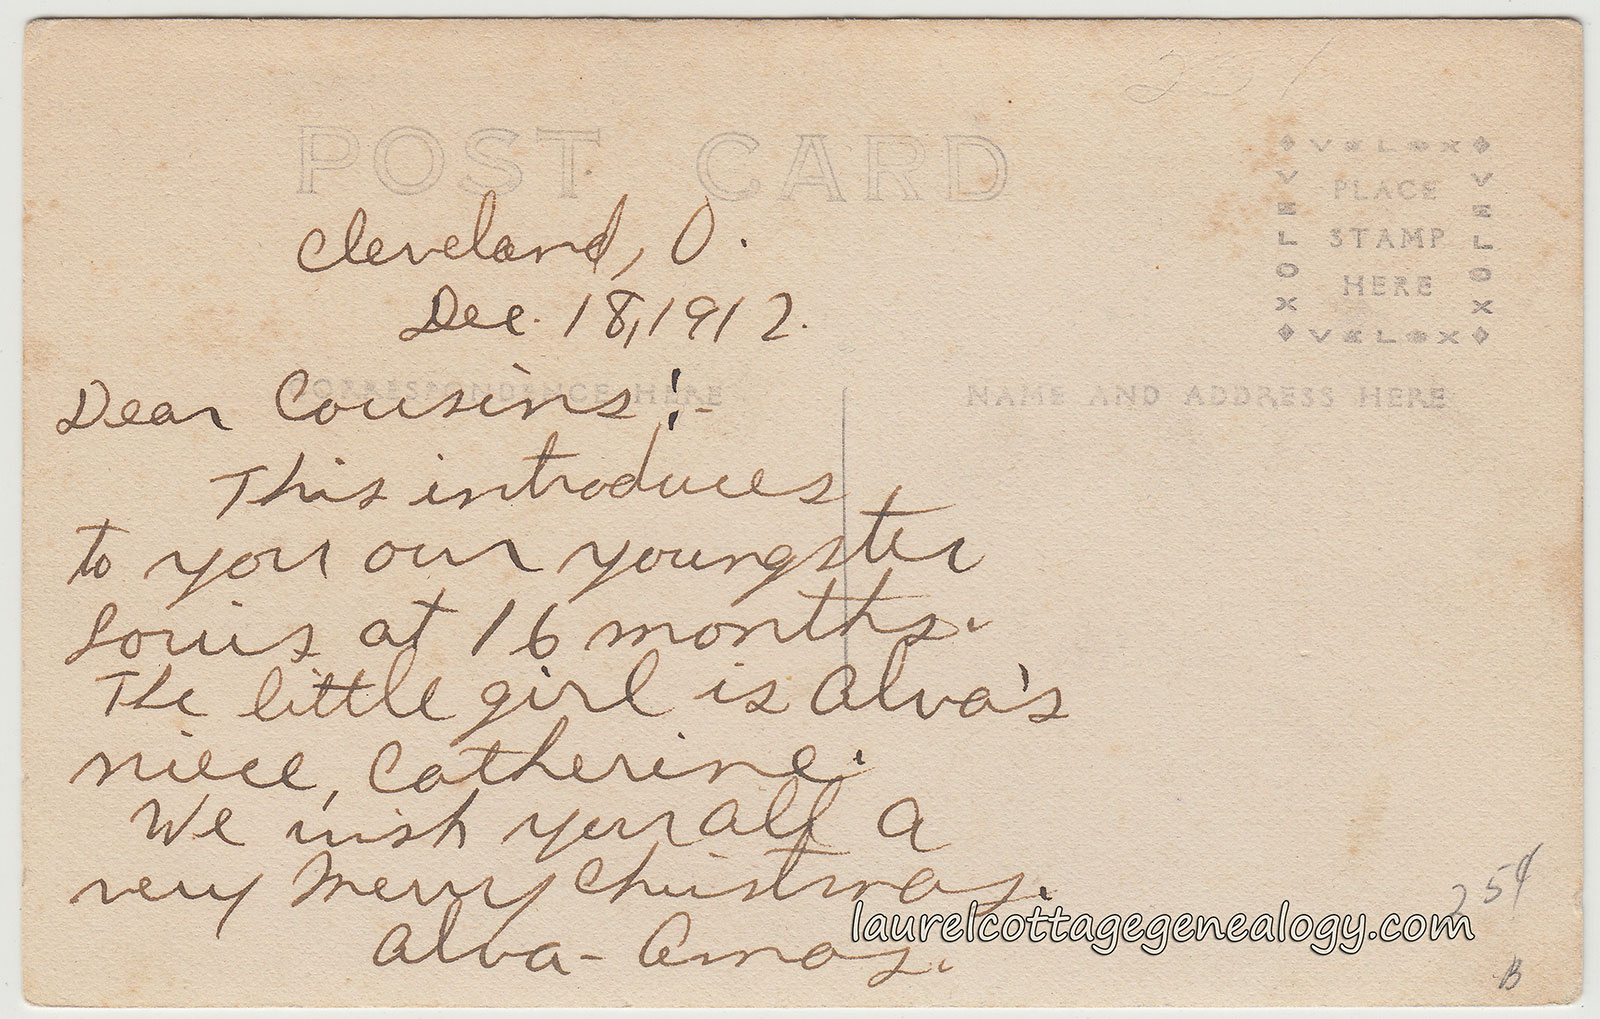 251
POST CARD
VELOX
VELOX
VELOX
VELOX
PLACE
STAMP
HERE
Cleveland, O.
Dec. 18, 1912.
CORRESPONDENCE HERE
NAME AND ADDRESS HERE
Dear Cousins:-
This introduces
to you our youngster
Louis at 16 months.
The little girl is Alva's
niece, Catherine.
We wish you all a
very Merry Christmas.
Alva-Amos.
laurelcottagegenealogy.com
25¢
B